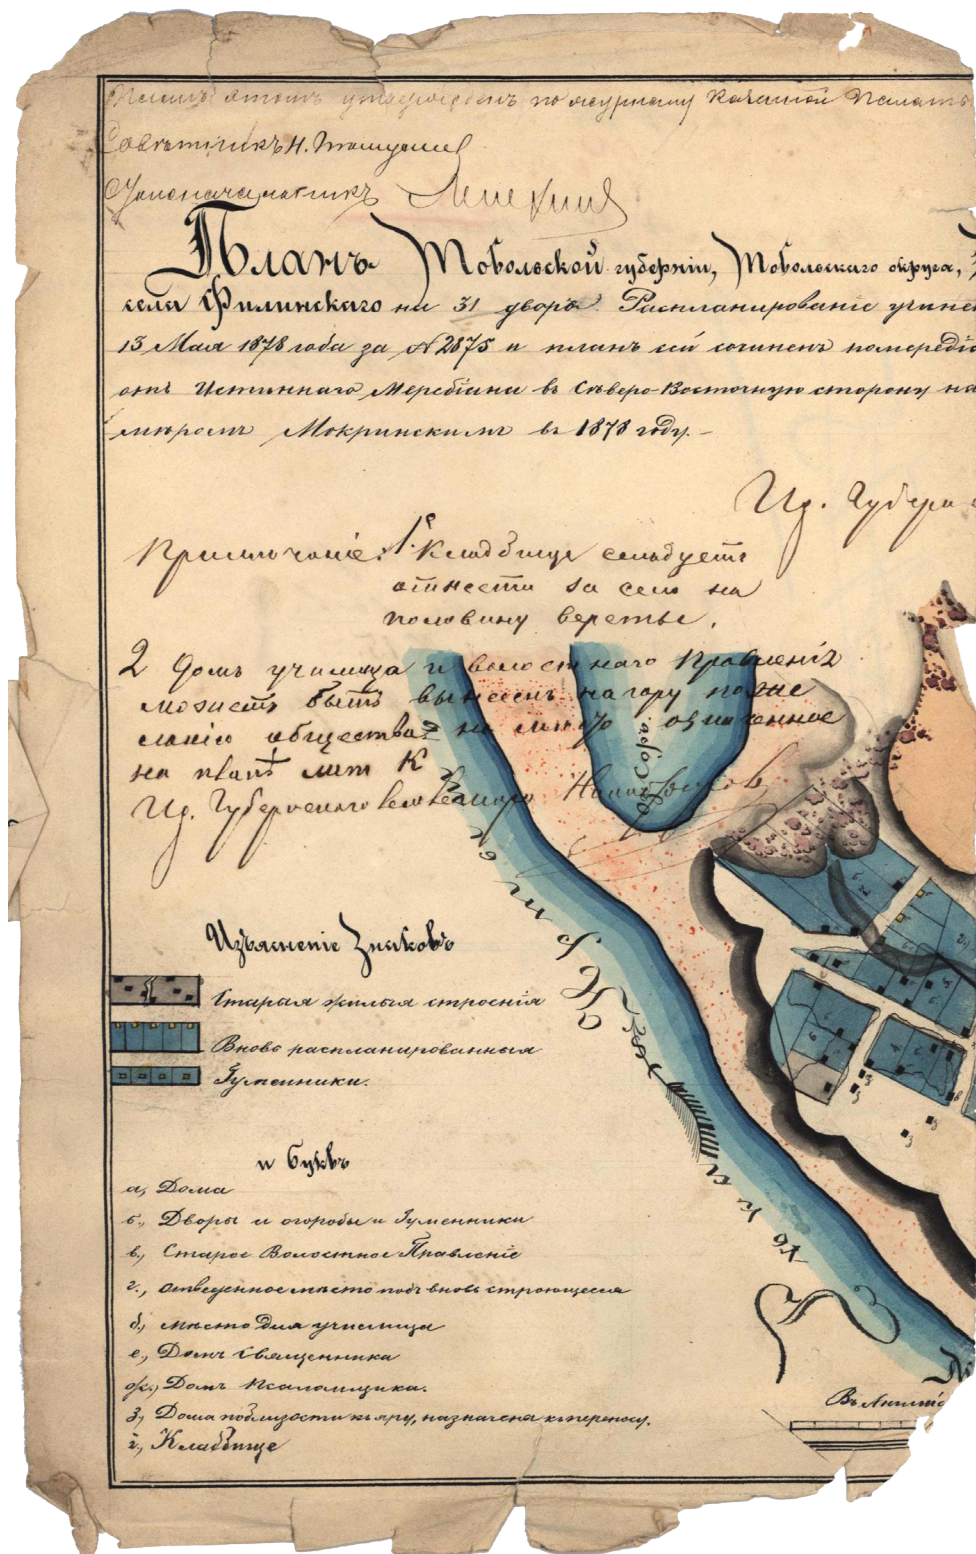 утвержденъ по журналу Казенной Палаты
Совѣтникъ Н.
Столоначальникъ
Планъ Тобольской губерніи, Тобольскаго округа,
села Филинскаго на 31 дворъ. Распланированіе учинен
13 Мая 1878 года за № 2875 и планъ сей сочиненъ
отъ Истиннаго Меридіана въ Сѣверо-Восточную сторону на
Мокринскимъ въ 1878 году.
Ид. Губерн
Примѣчаніе: 1е Кладбище слѣдуетъ
отнести за село на
половину версты.
2 Домъ училища и волостнаго Правленія
можетъ быть вынесенъ на гору по же
ланію общества на мѣсто означенное
на планѣ лит К
Ид. Губернскаго
Соборъ
Рѣка
Изъясненіе Знаковъ
Старыя жилыя строенія
Вновь распланированныя
Гуменники.
и буквъ
а, Дома
б, Дворы и огороды и Гуменники
в, Старое Волостное Правленіе
г, отведенное мѣсто подъ вновь строющееся
д, мѣсто для училища
е, Домъ священника
ж, Домъ псаломщика.
з, Дома поблизости къ яру, назначена къ переносу.
і, Кладбище
Въ Англій